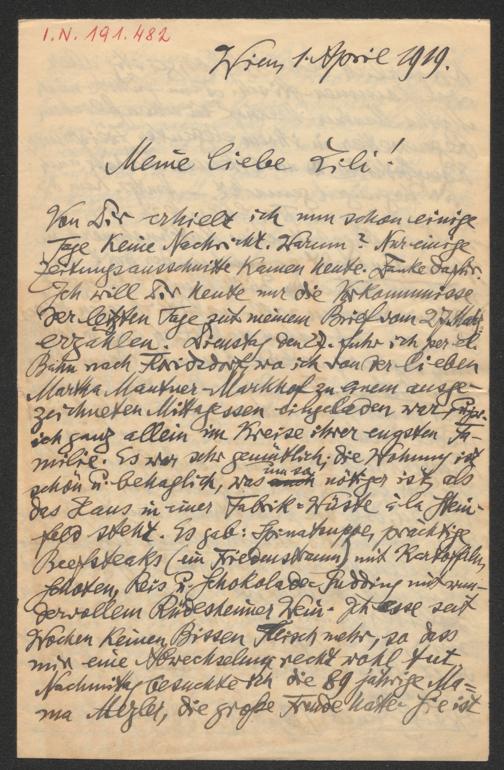 I.N. 191.482
Wien, 1. April 1919.
Meine liebe Lili!
Von Dir erhielt ich nun schon einige
Tage keine Nachricht. Warum? Nur einige
Zeitungsausschnitte kamen heute. Danke dafür.
Ich will Dir heute nur die Vorkommnisse
der letzten Tage seit meinem Brief vom 27. März
erzählen. Dienstag den fuhr ich per el.
Bahn nach Floridsdorf, wo ich von der lieben
Martha Mautner-Markhof zu einem ausge-
zeichneten Mittagessen eingeladen war, u. zw.
ich ganz allein im Kreise ihrer engsten Fa-
milie. Es war sehr gemütlich; die Wohnung ist
schön u. behaglich, was um so nötiger ist, als
das Haus in einer Fabrik-Wüste à la Stein-
feld steht. Es gab: Spinatsuppe, prächtige
Beefsteaks (ein Friedenstraum) mit Kartoffeln,
Schoten, Reis u. Schokolade-Pudding mit wun-
dervollem Rüdesheimer Wein. Ich esse seit
Wochen keinen Bissen Fleisch mehr, so dass
mir eine Abwechselung recht wohl tut.
Nachmittag besuchte ich die 89 jährige Ma-
ma die große Freude hatte. Sie ist